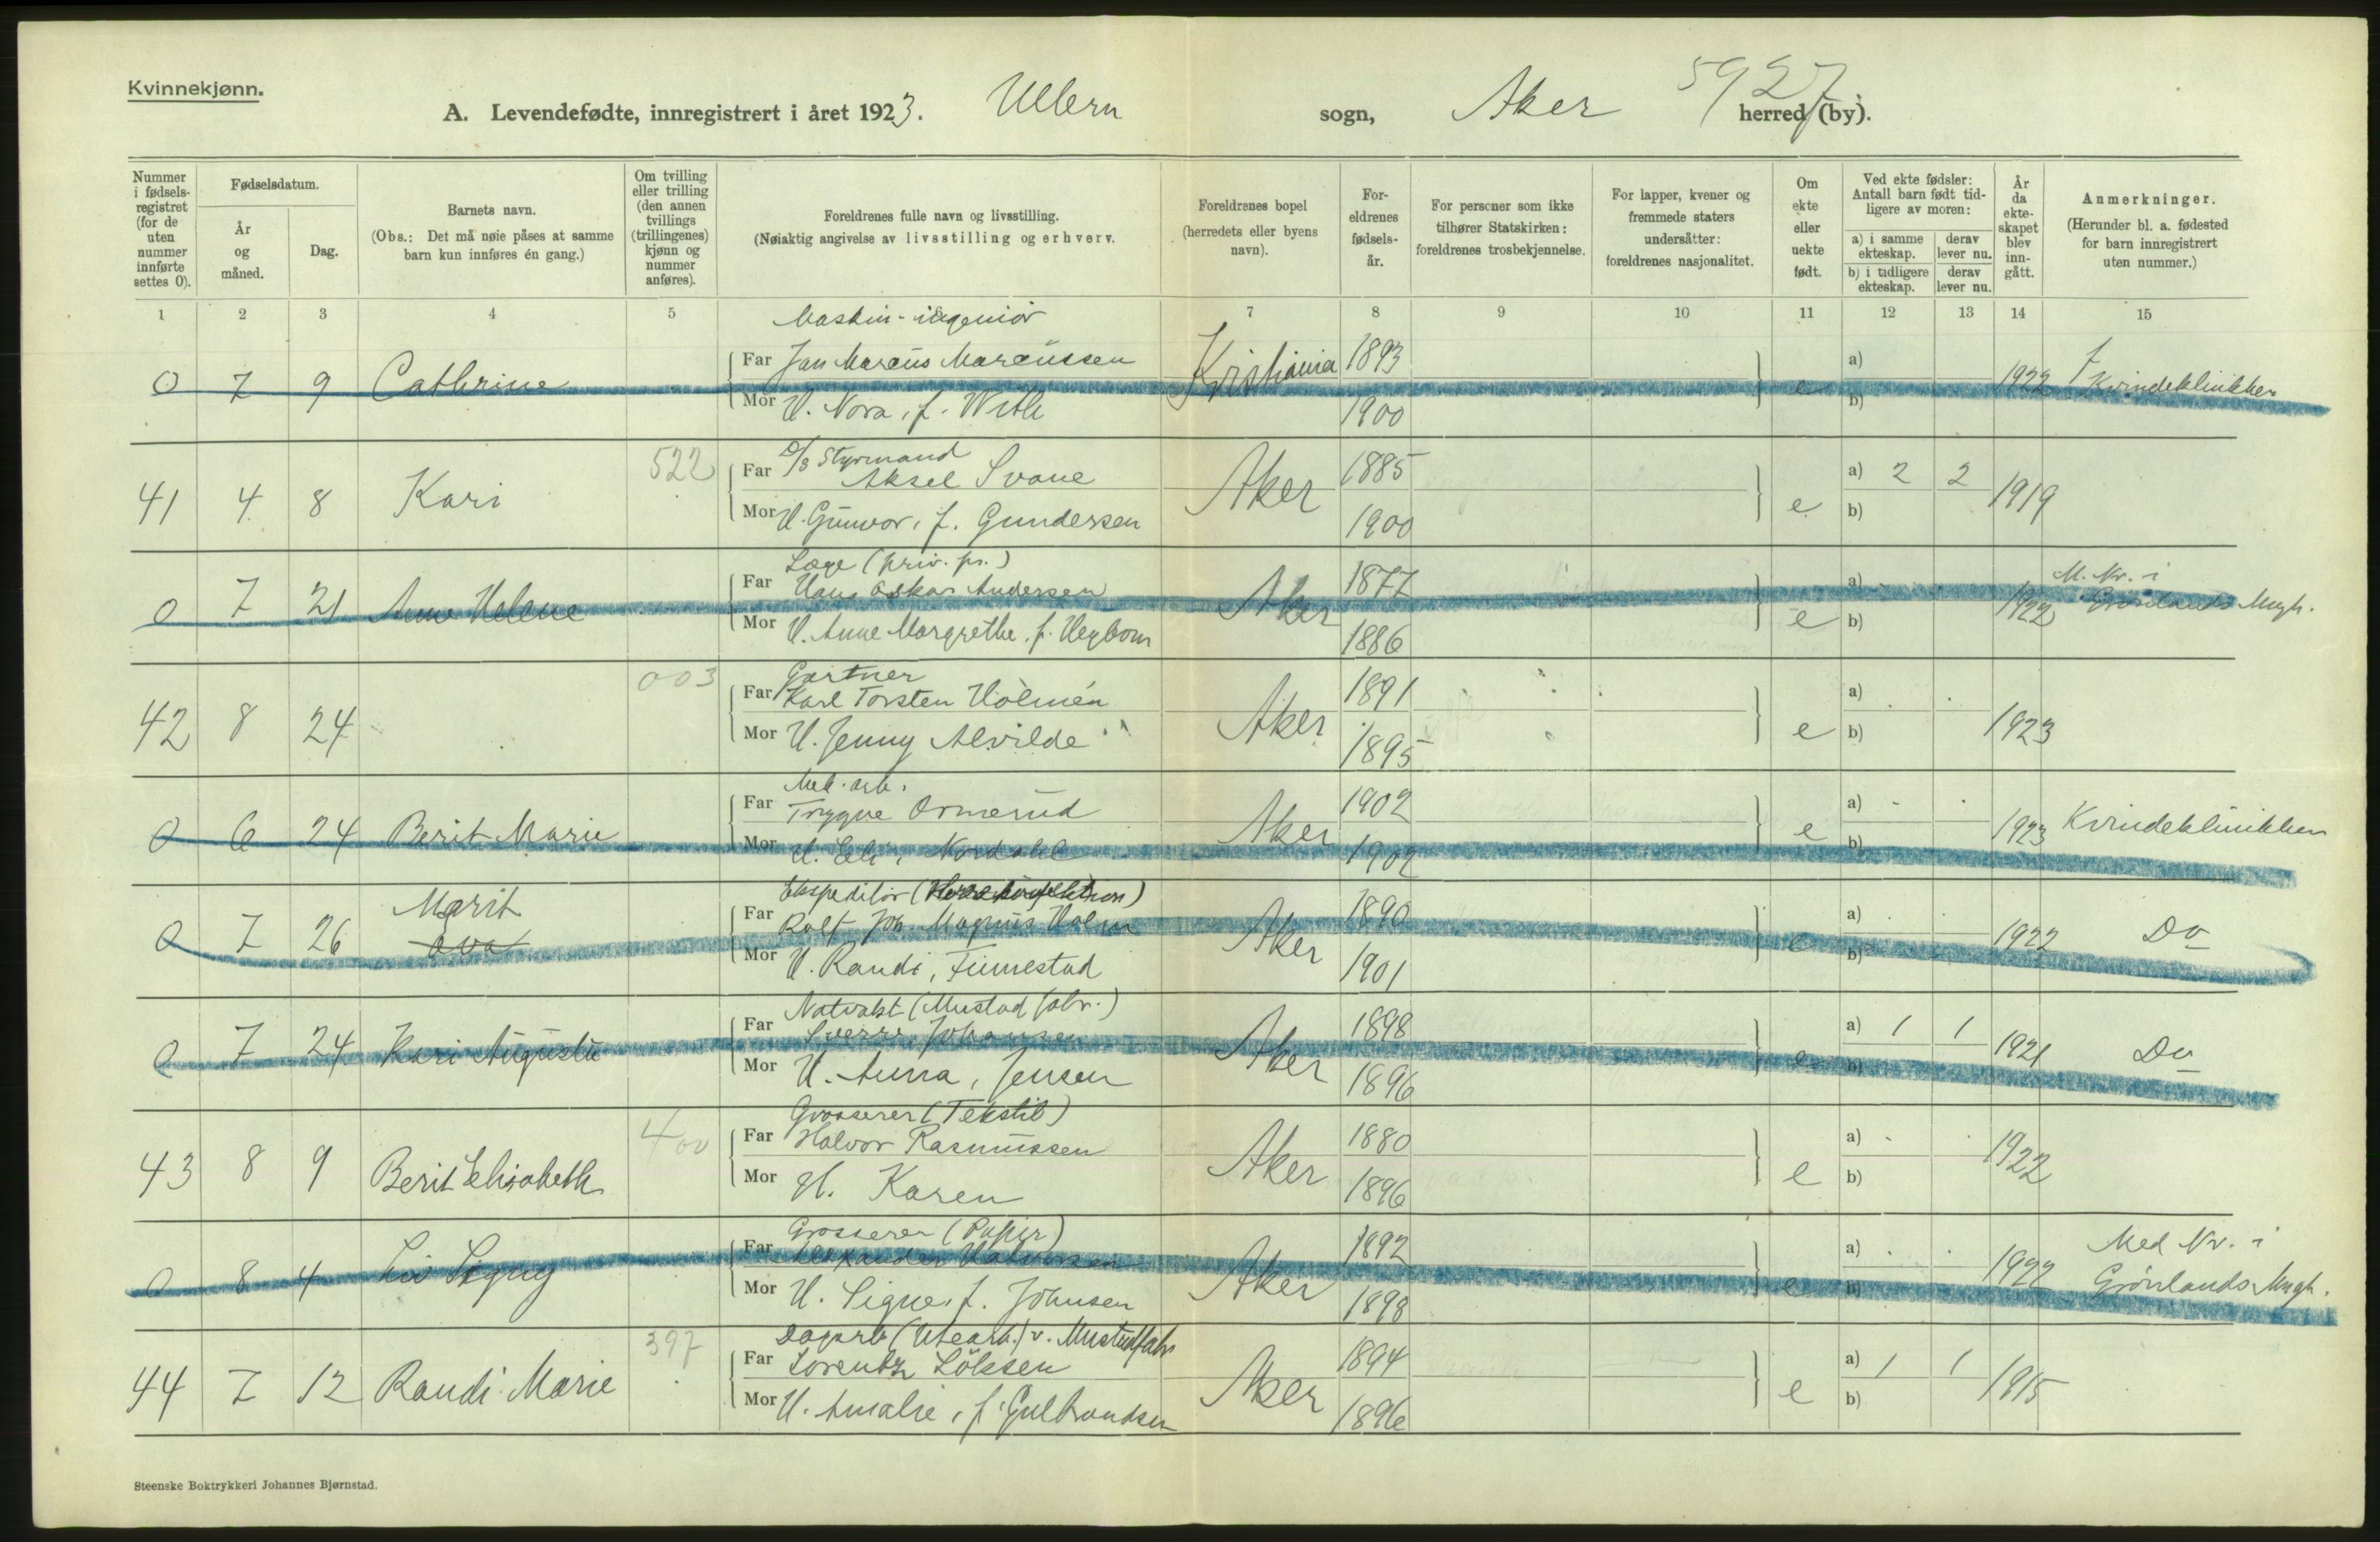 Kvinnekjønn.
5927
A. Levendefødte, innregistrert i året 1923. Ullern sogn, Aker herred (by).
Nummer i fødsels-registret (for de uten nummer innførte settes 0).
Fødselsdatum.
År og måned.
Dag.
Barnets navn.
(Obs.: Det må nøie påses at samme barn kun innføres én gang.)
Om tvilling eller trilling (den annen tvillings (trillingenes) kjønn og nummer anføres).
Foreldrenes fulle navn og livsstilling.
(Nøiaktig angivelse av livsstilling og erhverv.
Foreldrenes bopel (herredets eller byens navn).
For-eldrenes fødsels-år.
For personer som ikke tilhører Statskirken: foreldrenes trosbekjennelse.
For lapper, kvener og fremmede staters undersåtter: foreldrenes nasjonalitet.
Om ekte eller uekte født.
Ved ekte fødsler: Antall barn født tid-ligere av moren:
a) i samme ekteskap.
derav lever nu.
b) i tidligere ekteskap.
derav lever nu.
År da ekte-skapet blev inn-gått.
Anmerkninger.
(Herunder bl. a. fødested for barn innregistrert uten nummer.)
1 2 3 4 5 7 8 9 10 11 12 13 14 15
Maskin-ingeniør
0 7 9 Cathrine Far Jan Marcus Marcussen Kristiania 1893 e a) 1922 Kvindeklinikken
Mor H. Nora, f. With 1900 b)
522 D/S Styrmand
41 4 8 Kari Far Aksel Svane Aker 1885 e a) 2 2 1919
Mor H. Gunvor, f. Gundersen 1900 b)
Læge (priv. pr.)
0 7 21 Anne Helene Far Hans Oskar Andersen Aker 1877 e a) 1922 M. Nr. i Grønlands Mngh.
Mor H. Anne Margrethe, f. Heybom 1886 b)
003 Gartner
42 8 24 Far Karl Torsten Holmén Aker 1891 e a) 1923
Mor H. Jenny Alvilde 1895 b)
Mek. arb.
0 6 24 Berit Marie Far Trygve Ormerud Aker 1902 e a) 1923 Kvindeklinikken
Mor H. Eli, Nordahl 1902 b)
Ekspeditør
0 7 26 Marit Far Rolf Joh. Magnus Holm Aker 1890 e a) 1922 Do
Mor H. Randi, Finnestad 1901 b)
Natvakt (Mustad fabr.)
0 7 24 Kari Augusta Far Sverre Johansen Aker 1898 e a) 1 1 1921 Do
Mor H. Anna, Jensen 1896 b)
400 Grosserer (Tekstil)
43 8 9 Berit Elisabeth Far Halvor Rasmussen Aker 1880 e a) 1922
Mor H. Karen 1896 b)
Grosserer (Papir)
0 8 4 Liv Signy Far Alexander Halvorsen Aker 1892 e a) 1922 Med Nr. i Grønlands Mngh.
Mor H. Signe, f. Johnsen 1898 b)
397 Dagarb. (Utearb.) v. Mustad fabr.
44 7 12 Randi Marie Far Lorentz Løksen Aker 1894 e a) 1 1 1915
Mor H. Amalie, f. Gulbrandsen 1896 b)
Steenske Boktrykkeri Johannes Bjørnstad.